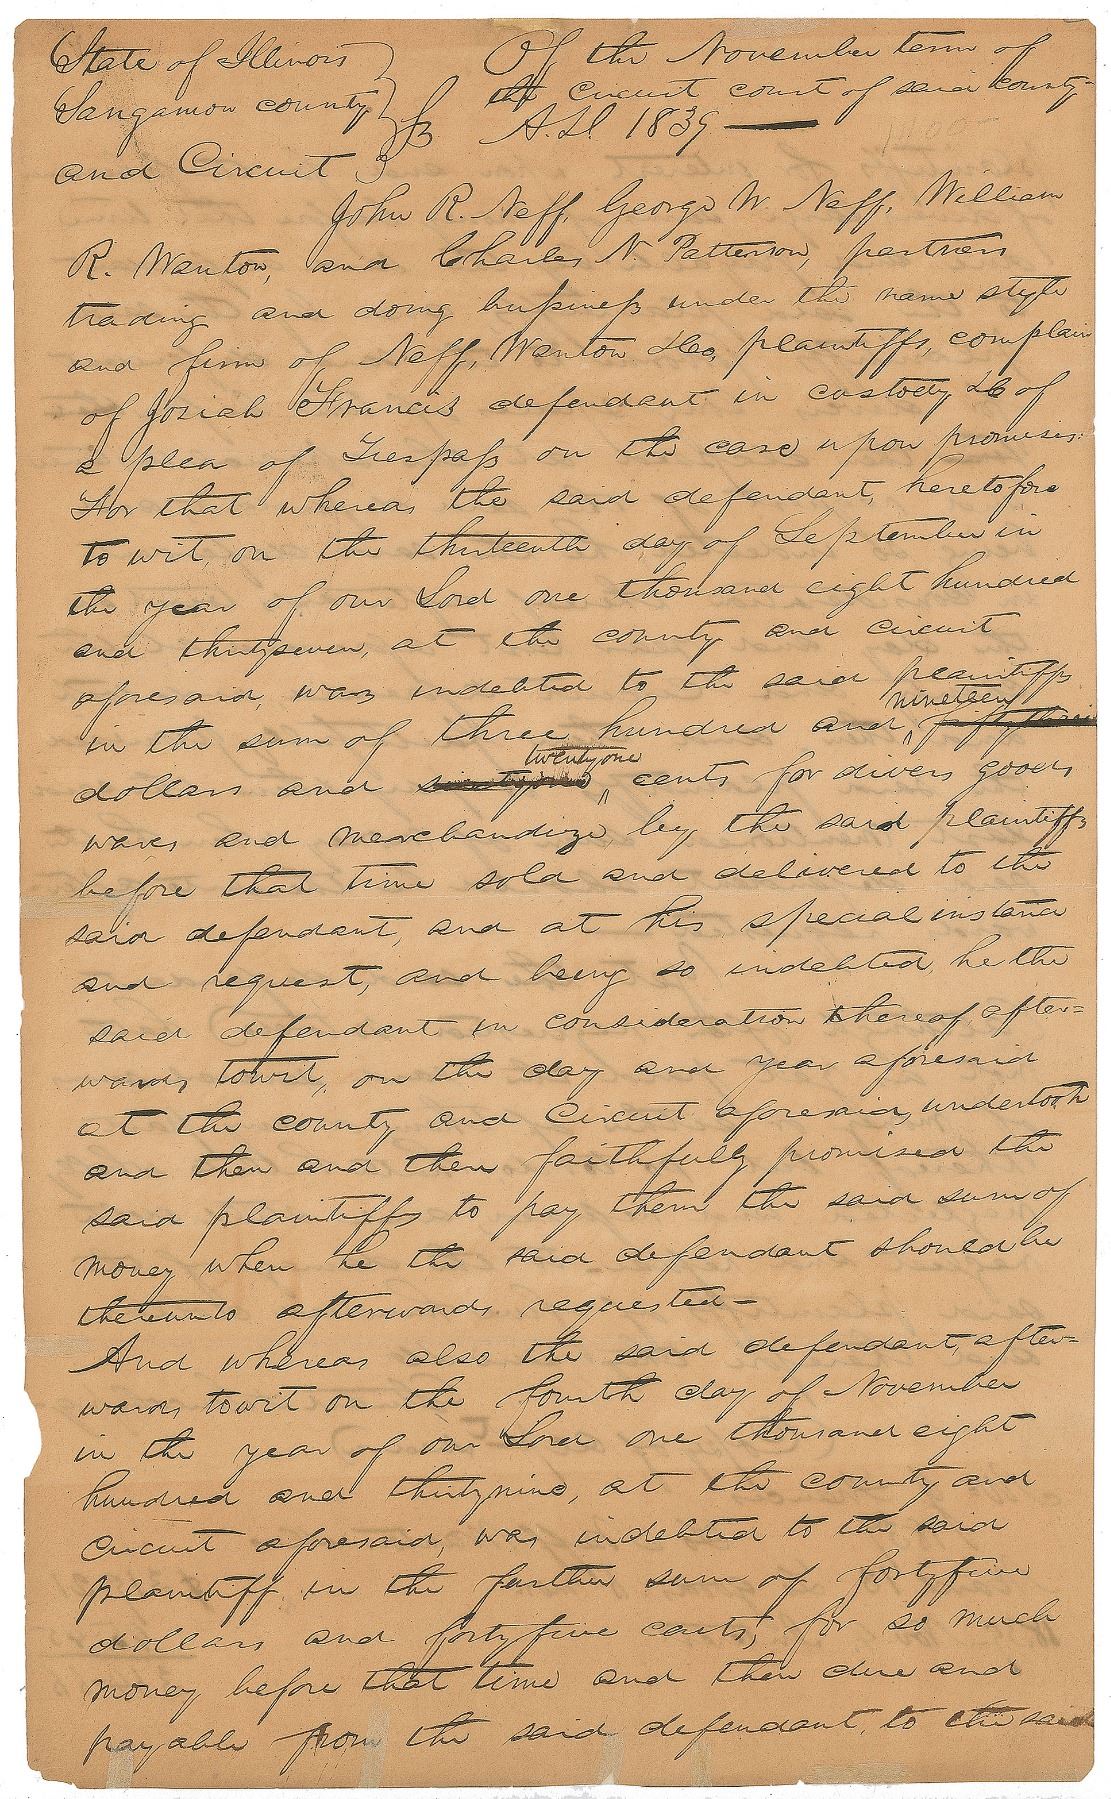 State of Illinois
Sangamon county
and Circuit
Of the November term of
the Circuit court of said county-
A.D. 1839 —
John R. Neff, George W. Neff, William
R. Wanton, and Charles N. Patterson, partners
trading and doing bussiness under the name style
and firm of Neff, Wanton &Co, plaintiffs, complain
of Josiah Francis defendant in custody &c of
a plea of Trespass on the case upon promises:
For that whereas the said defendant, heretofore
to wit, on the thirteenth day of September in
the year of our Lord one thousand eight hundred
and thirtyseven, at the county and circuit
aforesaid, was indebted to the said plaintiffs
in the sum of three hundred and nineteen
dollars and twentyone cents for divers goods
wares and merchandize, by the said plaintiffs
before that time sold and delivered to the
said defendant, and at his special instance
and request, and being so indebted, he the
said defendant in consideration thereof, after=
wards, towit, on the day and year aforesaid
at the county and circuit aforesaid, undertook
and then and there faithfully promised the
said plaintiffs to pay them the said sum of
money when he the said defendant should be
thereunto afterwards requested—
And whereas also the said defendant, after=
wards, towit on the fourth day of November
in the year of our Lord one thousand eight
hundred and thirtynine, at the county and
circuit aforesaid, was indebted to the said
plaintiff in the further sum of fortyfive
dollars and fortyfive cents, for so much
money before that time and then due and
payable from the said defendant, to the said